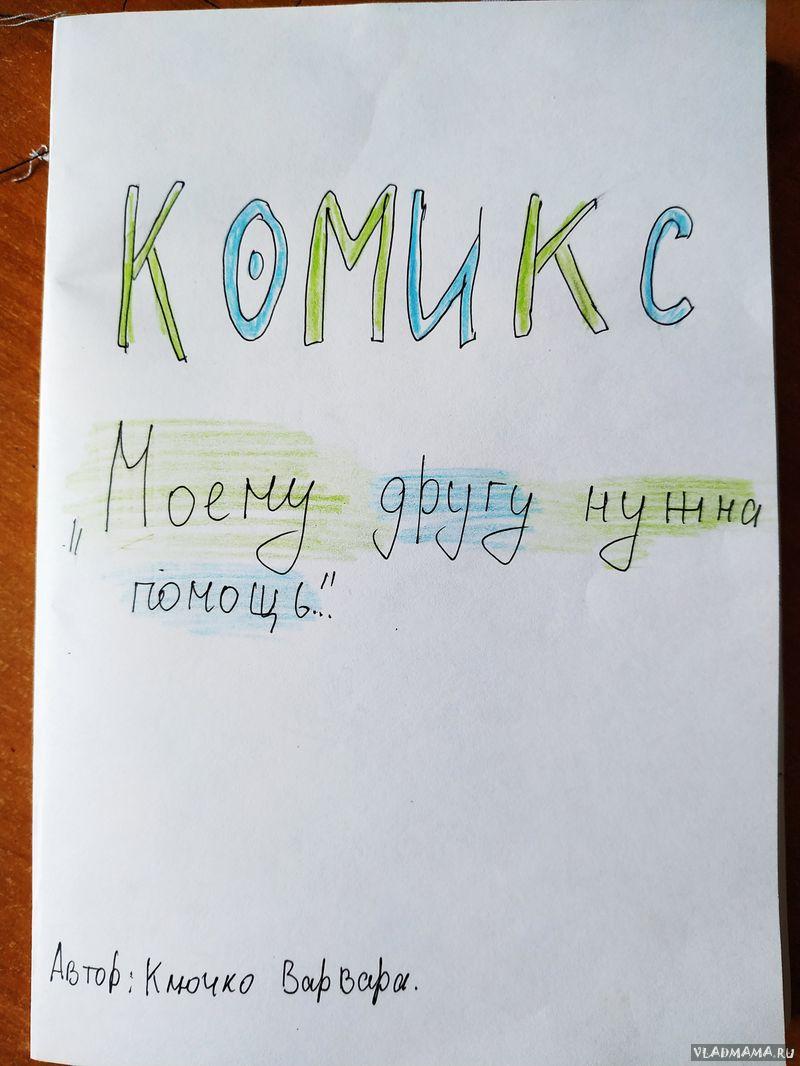 КОМИКС
„Моему другу нужна
помощь..."
Автор: Ключко Варвара.
VLADMAMA.RU